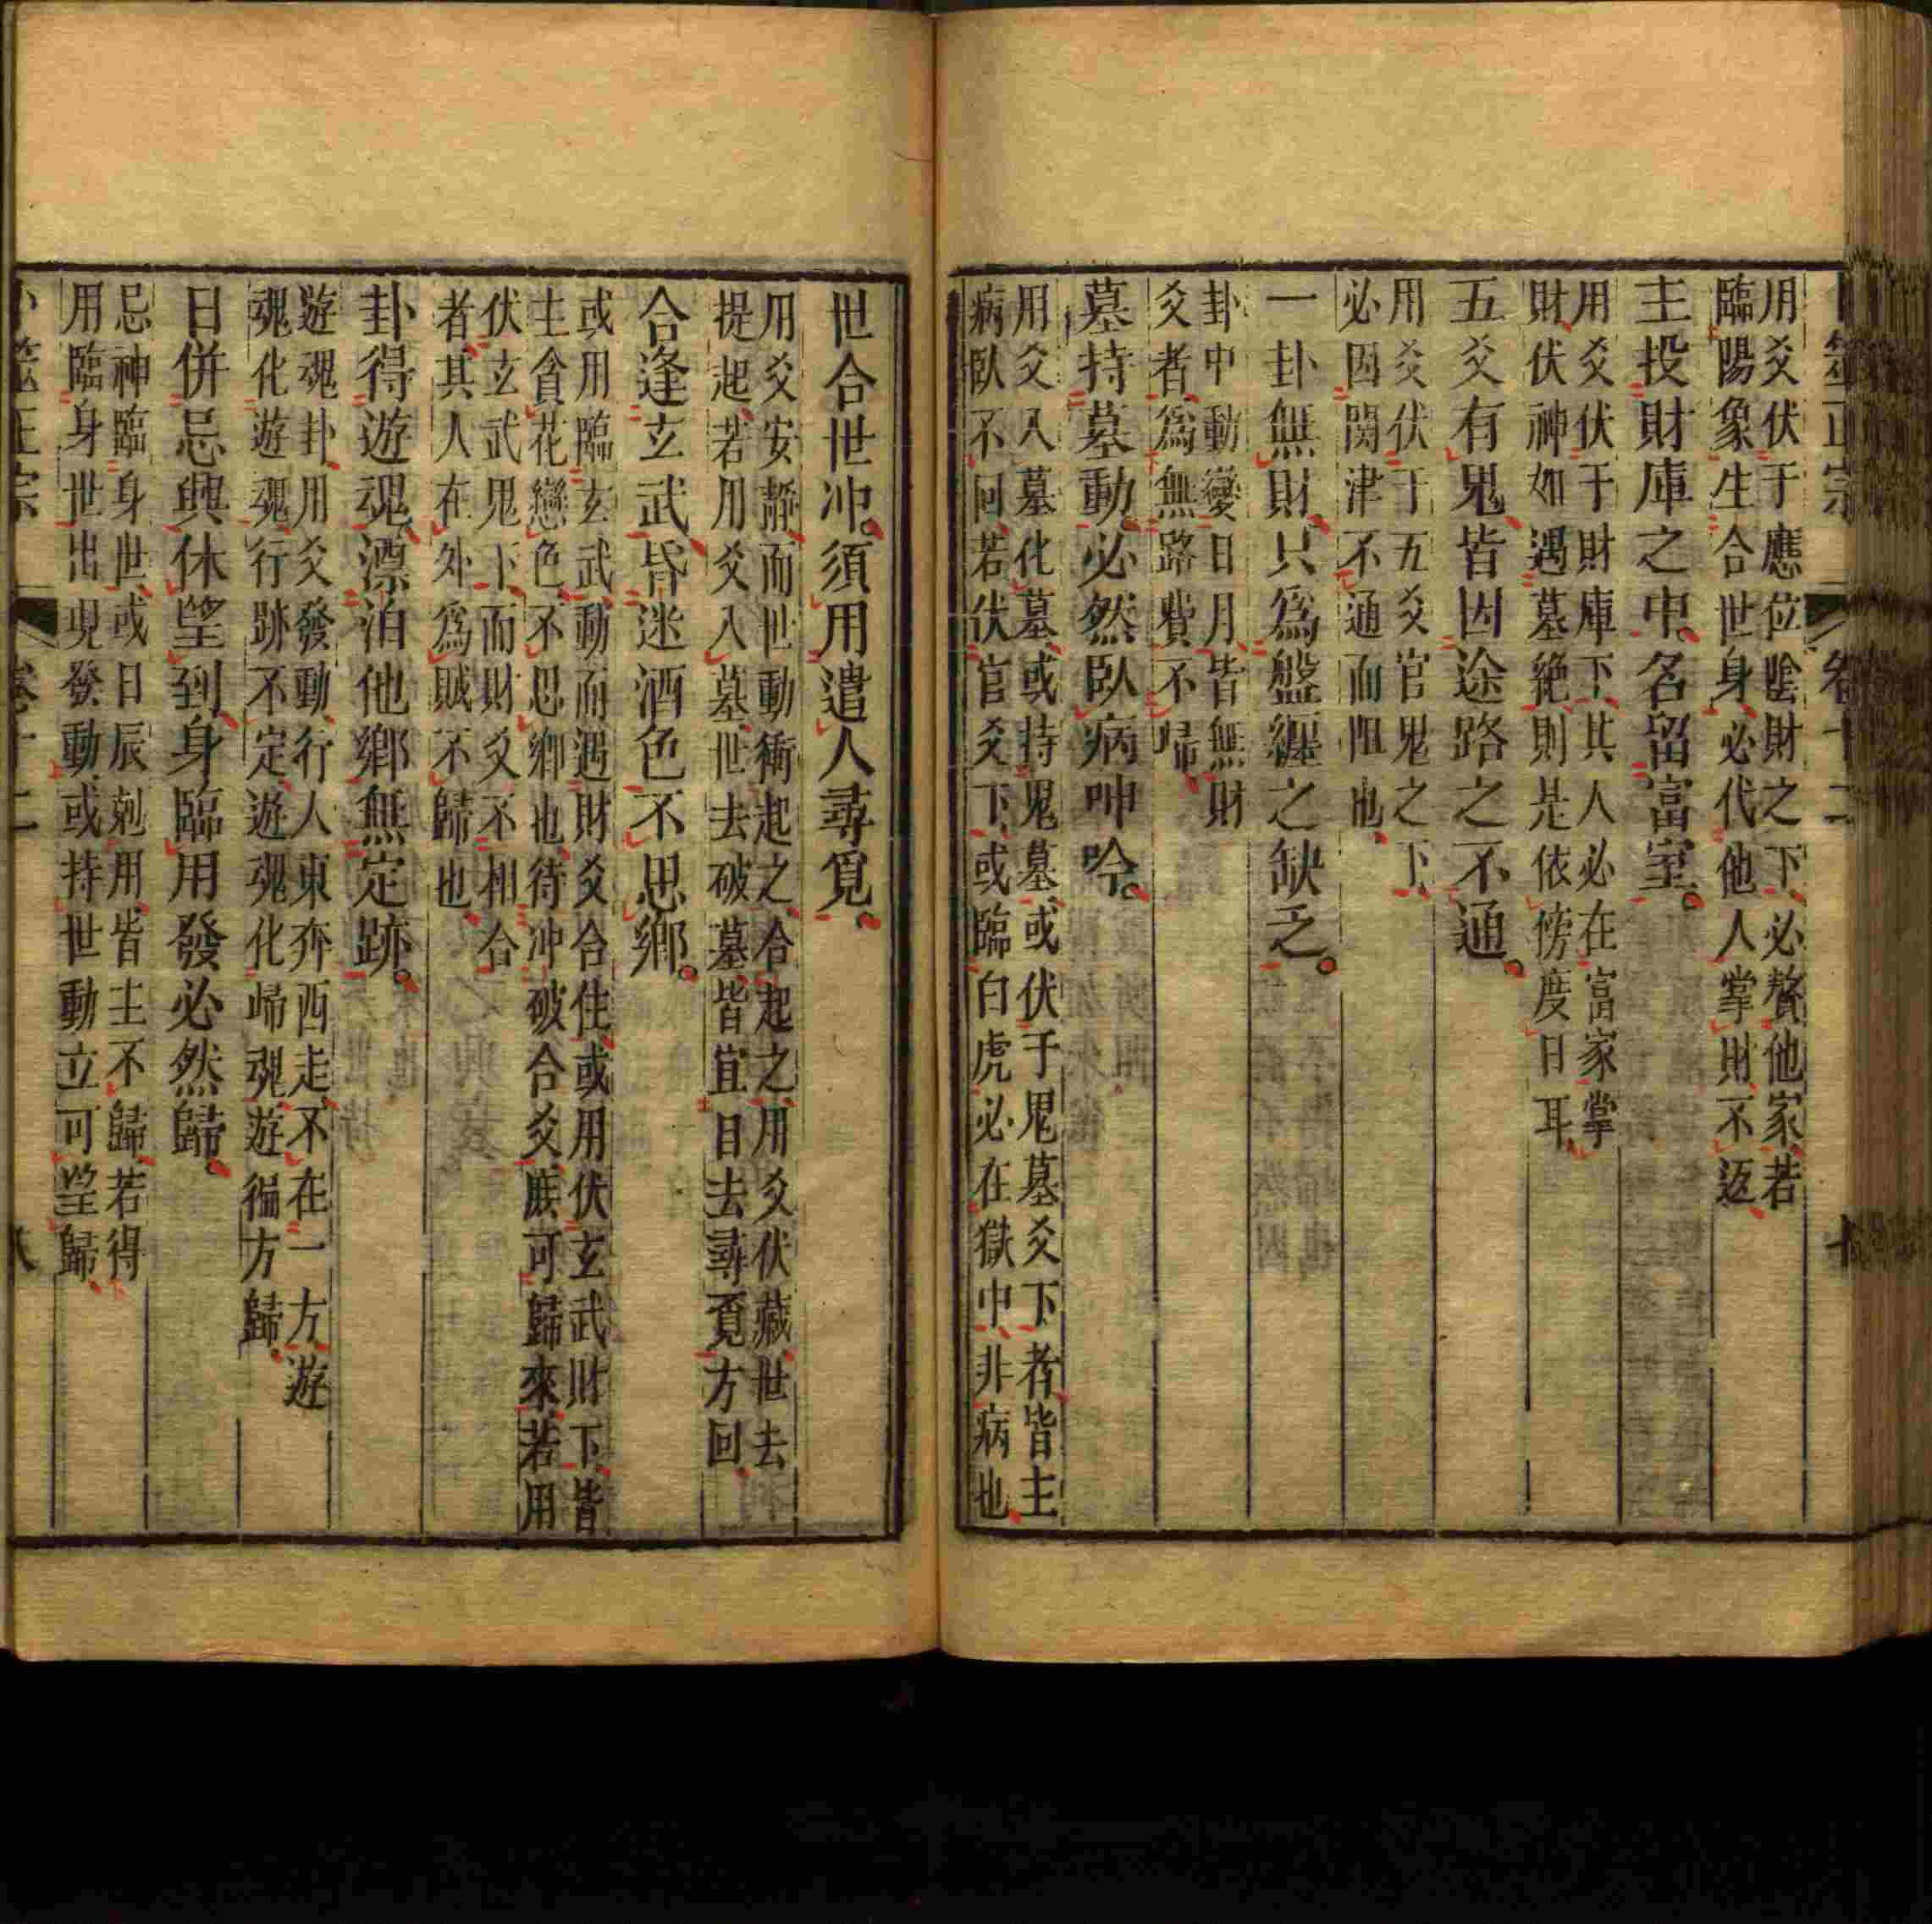 卜筮正宗 卷十二
用爻伏于應位陰財之下必贅他家若
臨陽象生合世身必代他人掌財不返
主投財庫之中名留富室
用爻伏于財庫下其人必在富家掌
財伏神如遇墓絶則是依傍度日耳
五爻有鬼皆因途路之不通
用爻伏于五爻官鬼之下
必因関津不通而阻也
一卦無財只爲盤纒之缺乏
卦中動變日月皆無財
爻者爲無路費不歸
墓持墓動必然臥病呻吟
用爻入墓化墓或持鬼墓或伏于鬼墓爻下者皆主
病臥不回若伏官爻下或臨白虎必在獄中非病也
世合世冲須用遣人尋覓
用爻安靜而世動衝起之合起之用爻伏藏世去
提起若用爻入墓世去破墓皆宜自去尋覓方回
合逢玄武昏迷酒色不思鄉
或用臨玄武動而遇財爻合住或用伏玄武財下皆
主貪花戀色不思鄉也待冲破合爻庶可歸來若用
伏玄武鬼下而財爻不相合
者其人在外爲賊不歸也
卦得遊魂漂泊他鄉無定跡
遊魂卦用爻發動行人東奔西走不在一方遊
魂化遊魂行跡不定遊魂化歸魂遊徧方歸
日併忌興休望到身臨用發必然歸
忌神臨身世或日辰剋用皆主不歸若得
用臨身世出現發動或持世動立可望歸
卜筮正宗 卷十二 八